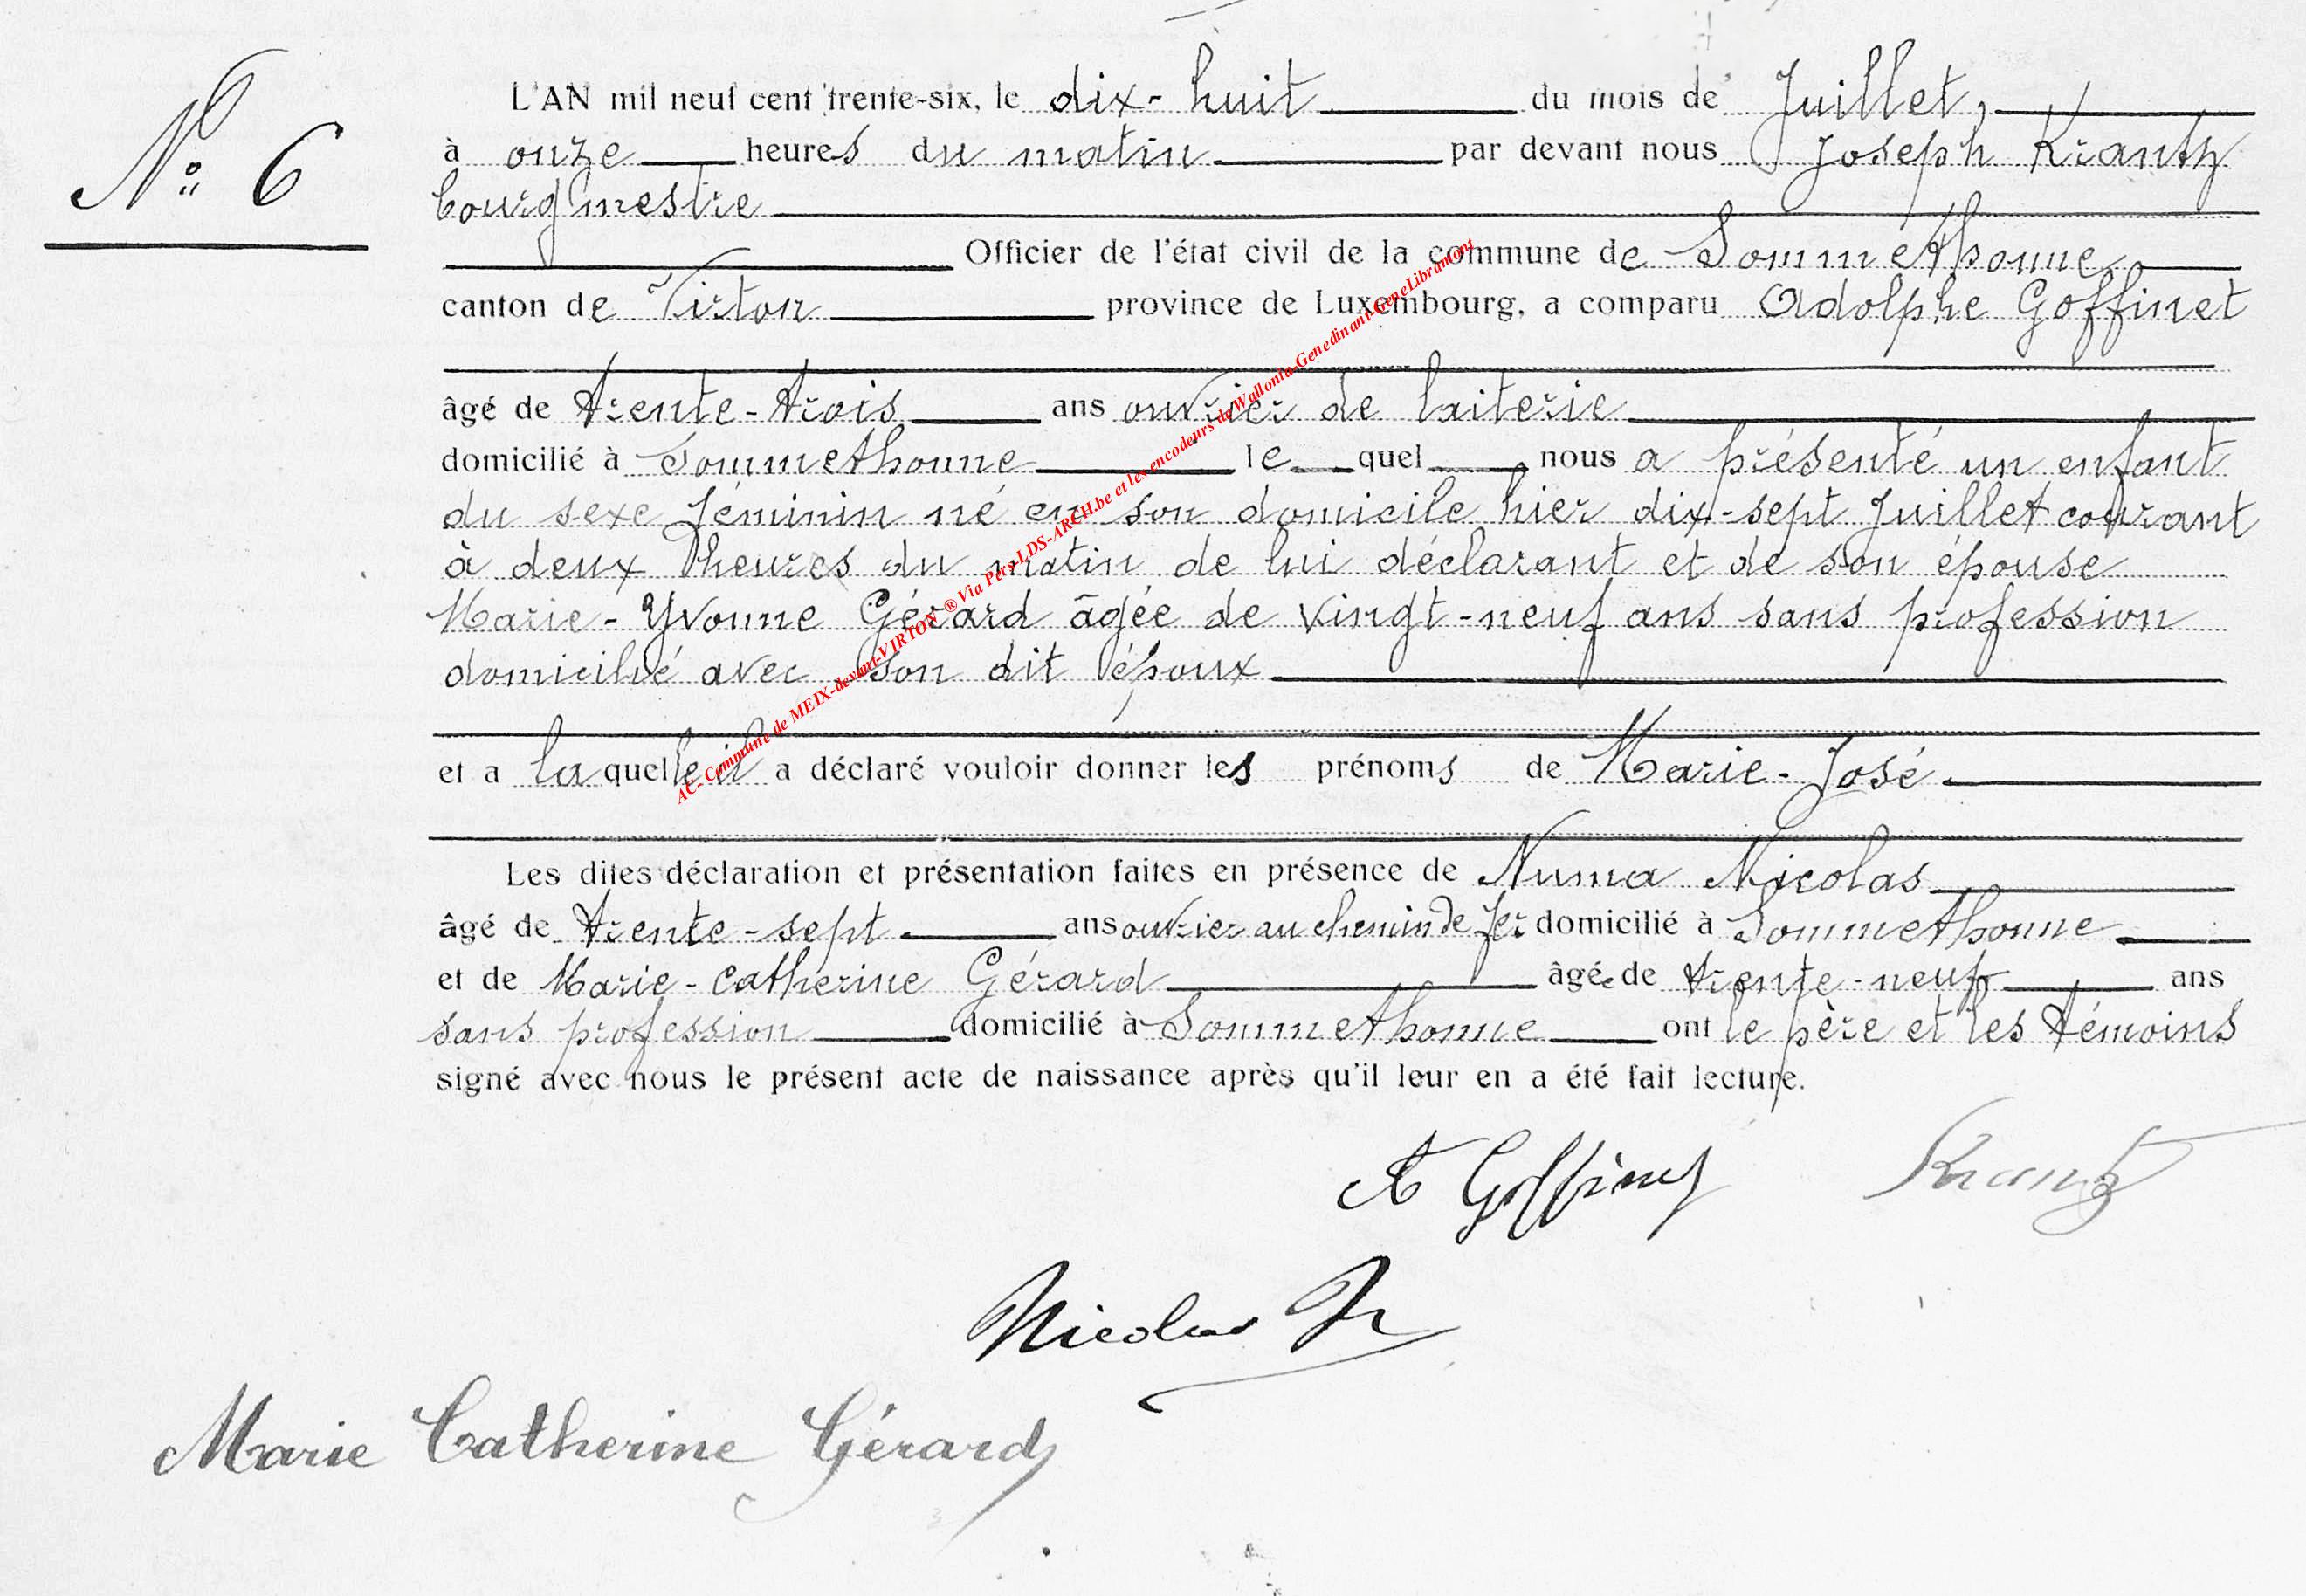 N° 6
L'AN mil neuf cent trente-six, le dix-huit du mois de Juillet,
à onze heures du matin par devant nous Joseph Krantz
bourgmestre
Officier de l'état civil de la commune de Sommethonne
canton de Virton province de Luxembourg, a comparu Adolphe Goffinet
âgé de trente-trois ans ouvrier de laiterie
domicilié à Sommethonne le quel nous a présenté un enfant
du sexe féminin né en son domicile hier dix-sept Juillet courant
à deux heures du matin de lui déclarant et de son épouse
Marie-Yvonne Gérard âgée de vingt-neuf ans sans profession
domicilié avec son dit époux
et a laquelle il a déclaré vouloir donner les prénoms de Marie-José
Les dites déclaration et présentation faites en présence de Numa Nicolas
âgé de trente-sept ans ouvrier au chemin de fer domicilié à Sommethonne
et de Marie-Catherine Gérard âgée de trente-neuf ans
sans profession domicilié à Sommethonne ont le père et les témoins
signé avec nous le présent acte de naissance après qu'il leur en a été fait lecture.
A Goffinet Krantz
Nicolas N
Marie Catherine Gérard
AC-Commune de MEIX-devant-VIRTON ® Via Pers-LDS-ARCH.be et les encodeurs de Wallonia-Genedinant-GeneLibramont